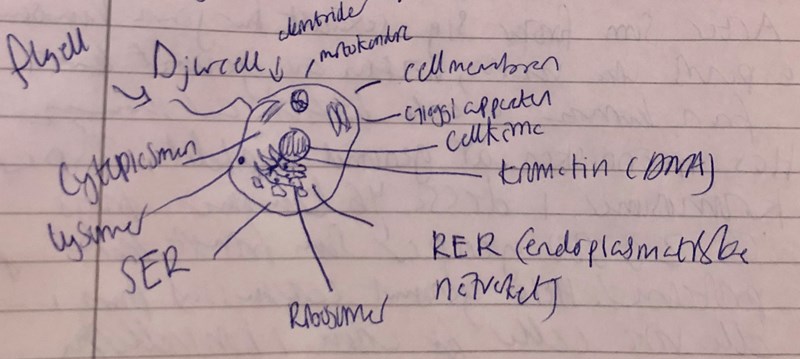 flagell
Djurcell
dentride
mitokondre
cellmembran
Gioggi apparten
Cellkärna
kromatin (DNA)
Cytoplasman
Lysomer
SER
RER (endoplasmatiska
nätverket)
Ribosomer